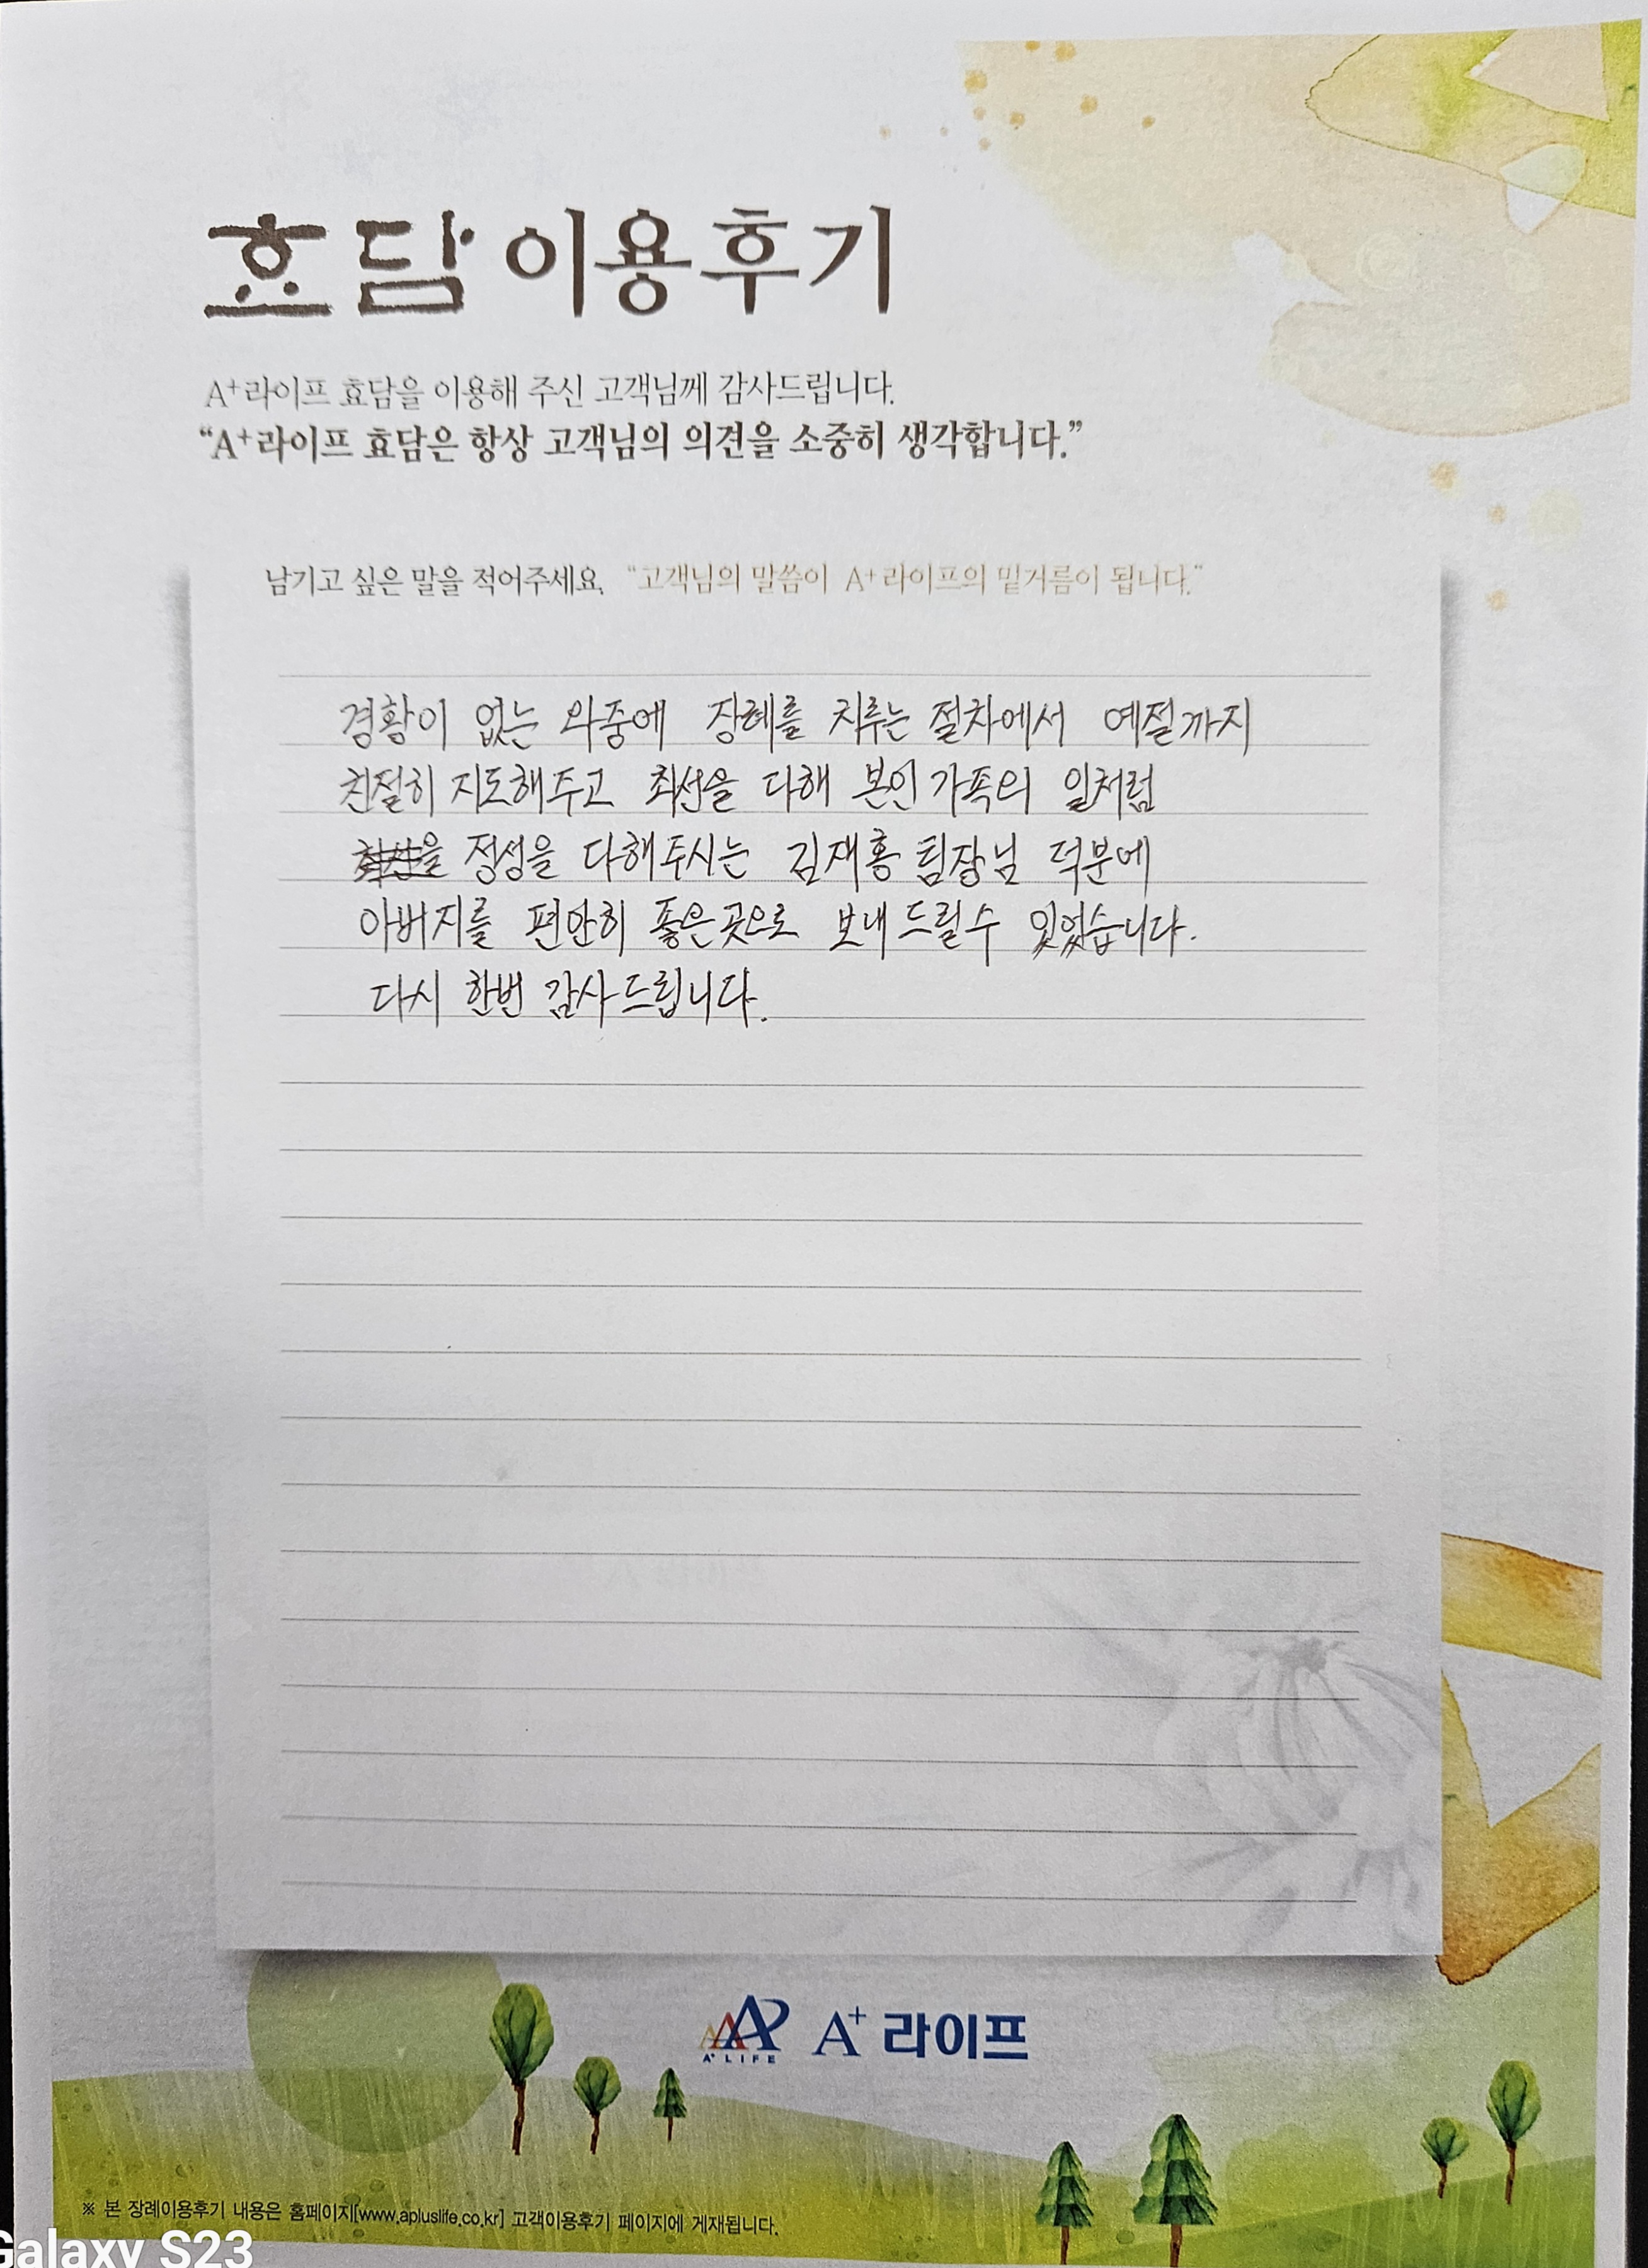 효담 이용후기
A⁺라이프 효담을 이용해 주신 고객님께 감사드립니다.
“A⁺라이프 효담은 항상 고객님의 의견을 소중히 생각합니다.”
남기고 싶은 말을 적어주세요. “고객님의 말씀이 A⁺라이프의 밑거름이 됩니다.”
경황이 없는 와중에 장혜를 치루는 절차에서 예절까지
친절히 지도해주고 최선을 다해 본인 가족의 일처럼
정성을 다해주시는 김재홍 팀장님 덕분에
아버지를 편안히 좋은곳으로 보내드릴수 있었습니다.
다시 한번 감사드립니다.
A⁺ LIFE A⁺ 라이프
※ 본 장례이용후기 내용은 홈페이지[www.apluslife.co.kr] 고객이용후기 페이지에 게재됩니다.
Galaxy S23